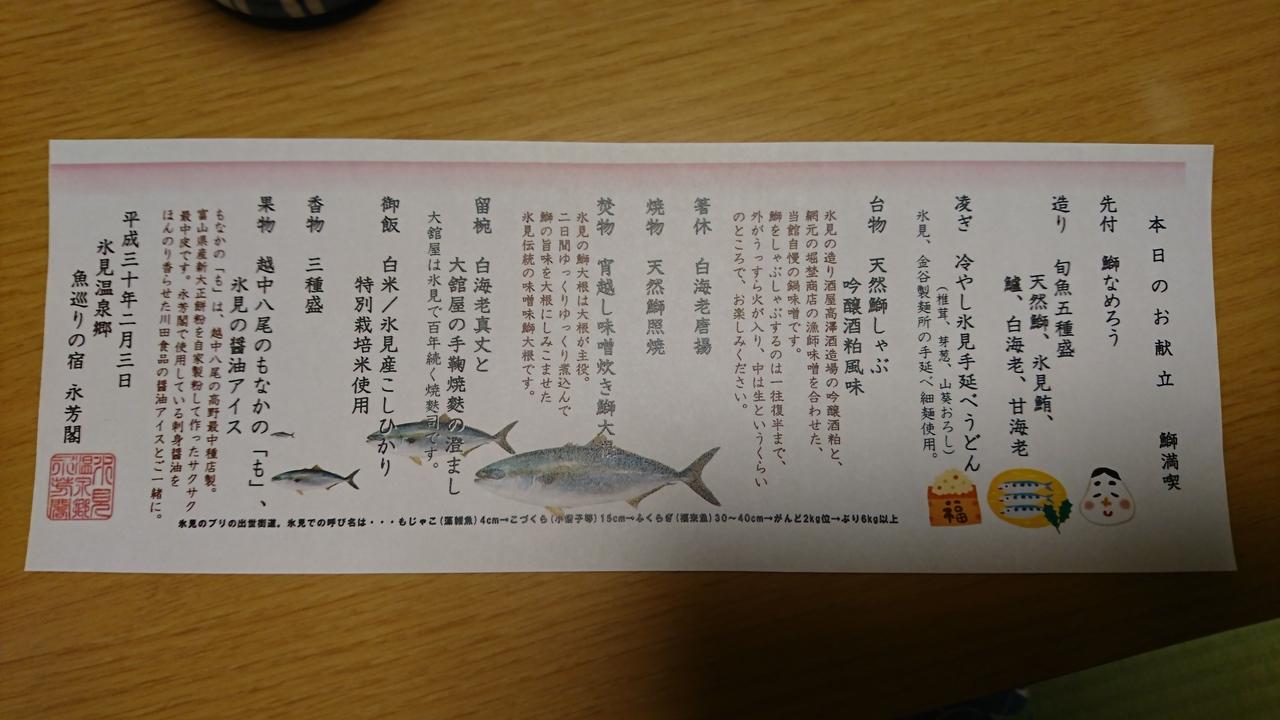 本日のお献立　鰤満喫
先付　鰤なめろう
造り　旬魚五種盛
天然鰤、氷見鮪、
鱸、白海老、甘海老
凌ぎ　冷やし氷見手延べうどん
（椎茸、芽葱、山葵おろし）
氷見、金谷製麺所の手延べ細麺使用。
台物　天然鰤しゃぶ
吟醸酒粕風味
氷見の造り酒屋高澤酒造場の吟醸酒粕と、
網元の堀埜商店の漁師味噌を合わせた、
当館自慢の鍋味噌です。
鰤をしゃぶしゃぶするのは一往復半まで、
外がうっすら火が入り、中は生というくらい
のところで、お楽しみください。
箸休　白海老唐揚
焼物　天然鰤照焼
焚物　宵越し味噌炊き鰤大根
氷見の鰤大根は大根が主役。
二日間ゆっくりゆっくり煮込んで
鰤の旨味を大根にしみこませた
氷見伝統の味噌味鰤大根です。
留椀　白海老真丈と
大館屋の手鞠焼麩の澄まし
大館屋は氷見で百年続く焼麩司です。
御飯　白米／氷見産こしひかり
特別栽培米使用
香物　三種盛
果物　越中八尾のもなかの「も」、
氷見の醤油アイス
もなかの「も」は、越中八尾の高野最中種店製。
富山県産新大正餅粉を自家製粉して作ったサクサク
最中皮です。永芳閣で使用している刺身醤油を
ほんのり香らせた川田食品の醤油アイスとご一緒に。
平成三十年二月三日
氷見温泉郷
魚巡りの宿　永芳閣
福
氷見のブリの出世街道。氷見での呼び名は・・・もじゃこ(藻雑魚)4cm→こづくら(小蔵子等)15cm→ふくらぎ(福来魚)30〜40cm→がんど2kg位→ぶり6kg以上
氷見
温泉郷
永芳閣